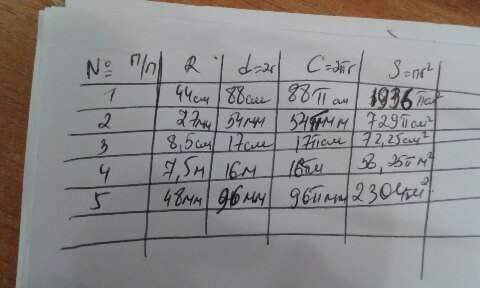 № п/п R d=2r C=2πr S=πr²
1 44см 88см 88π см 1936πсм²
2 27мм 54мм 54πмм 729πсм²
3 8,5см 17см 17πсм 72,25см²
4 7,5м 16м 16πм 56,25πм²
5 48мм 96мм 96πмм 2304πм²